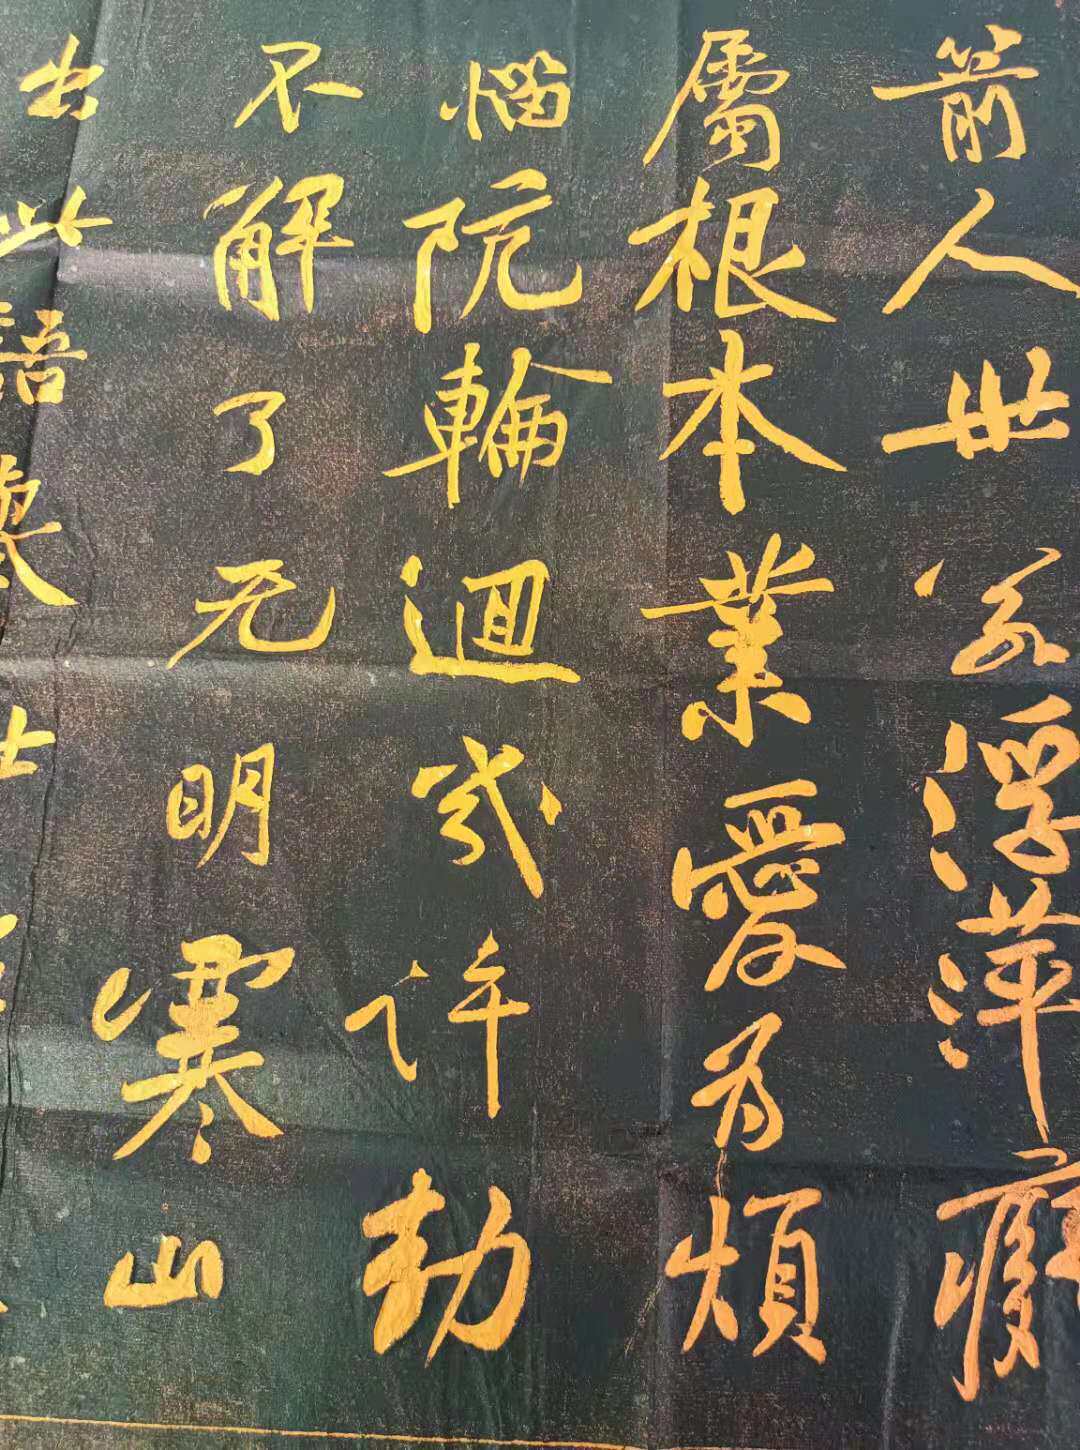 箭人世若浮萍癡
屬根本業愛為煩
惱阬輪迴幾許劫
不解了无明寒山
出此語